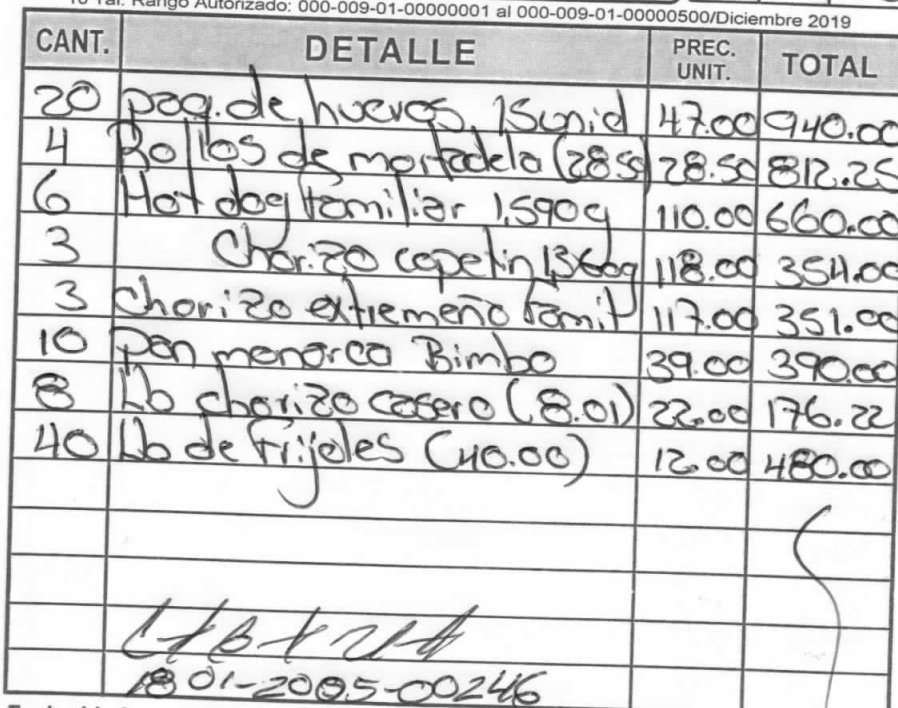 10 Tal. Rango Autorizado: 000-009-01-00000001 al 000-009-01-00000500/Diciembre 2019
CANT. DETALLE PREC. UNIT. TOTAL
20 paq. de huevos 15unid 47.00 940.00
4 Rollos de mortadela (28.50) 28.50 812.25
6 Hot dog familiar 1,590g 110.00 660.00
3 Chorizo copetin 1360g 118.00 354.00
3 Chorizo extremeño famil 117.00 351.00
10 pan menorca Bimbo 39.00 390.00
8 Lb chorizo casero (8.01) 22.00 176.22
40 Lb de frijoles (40.00) 12.00 480.00
1801-2005-00246